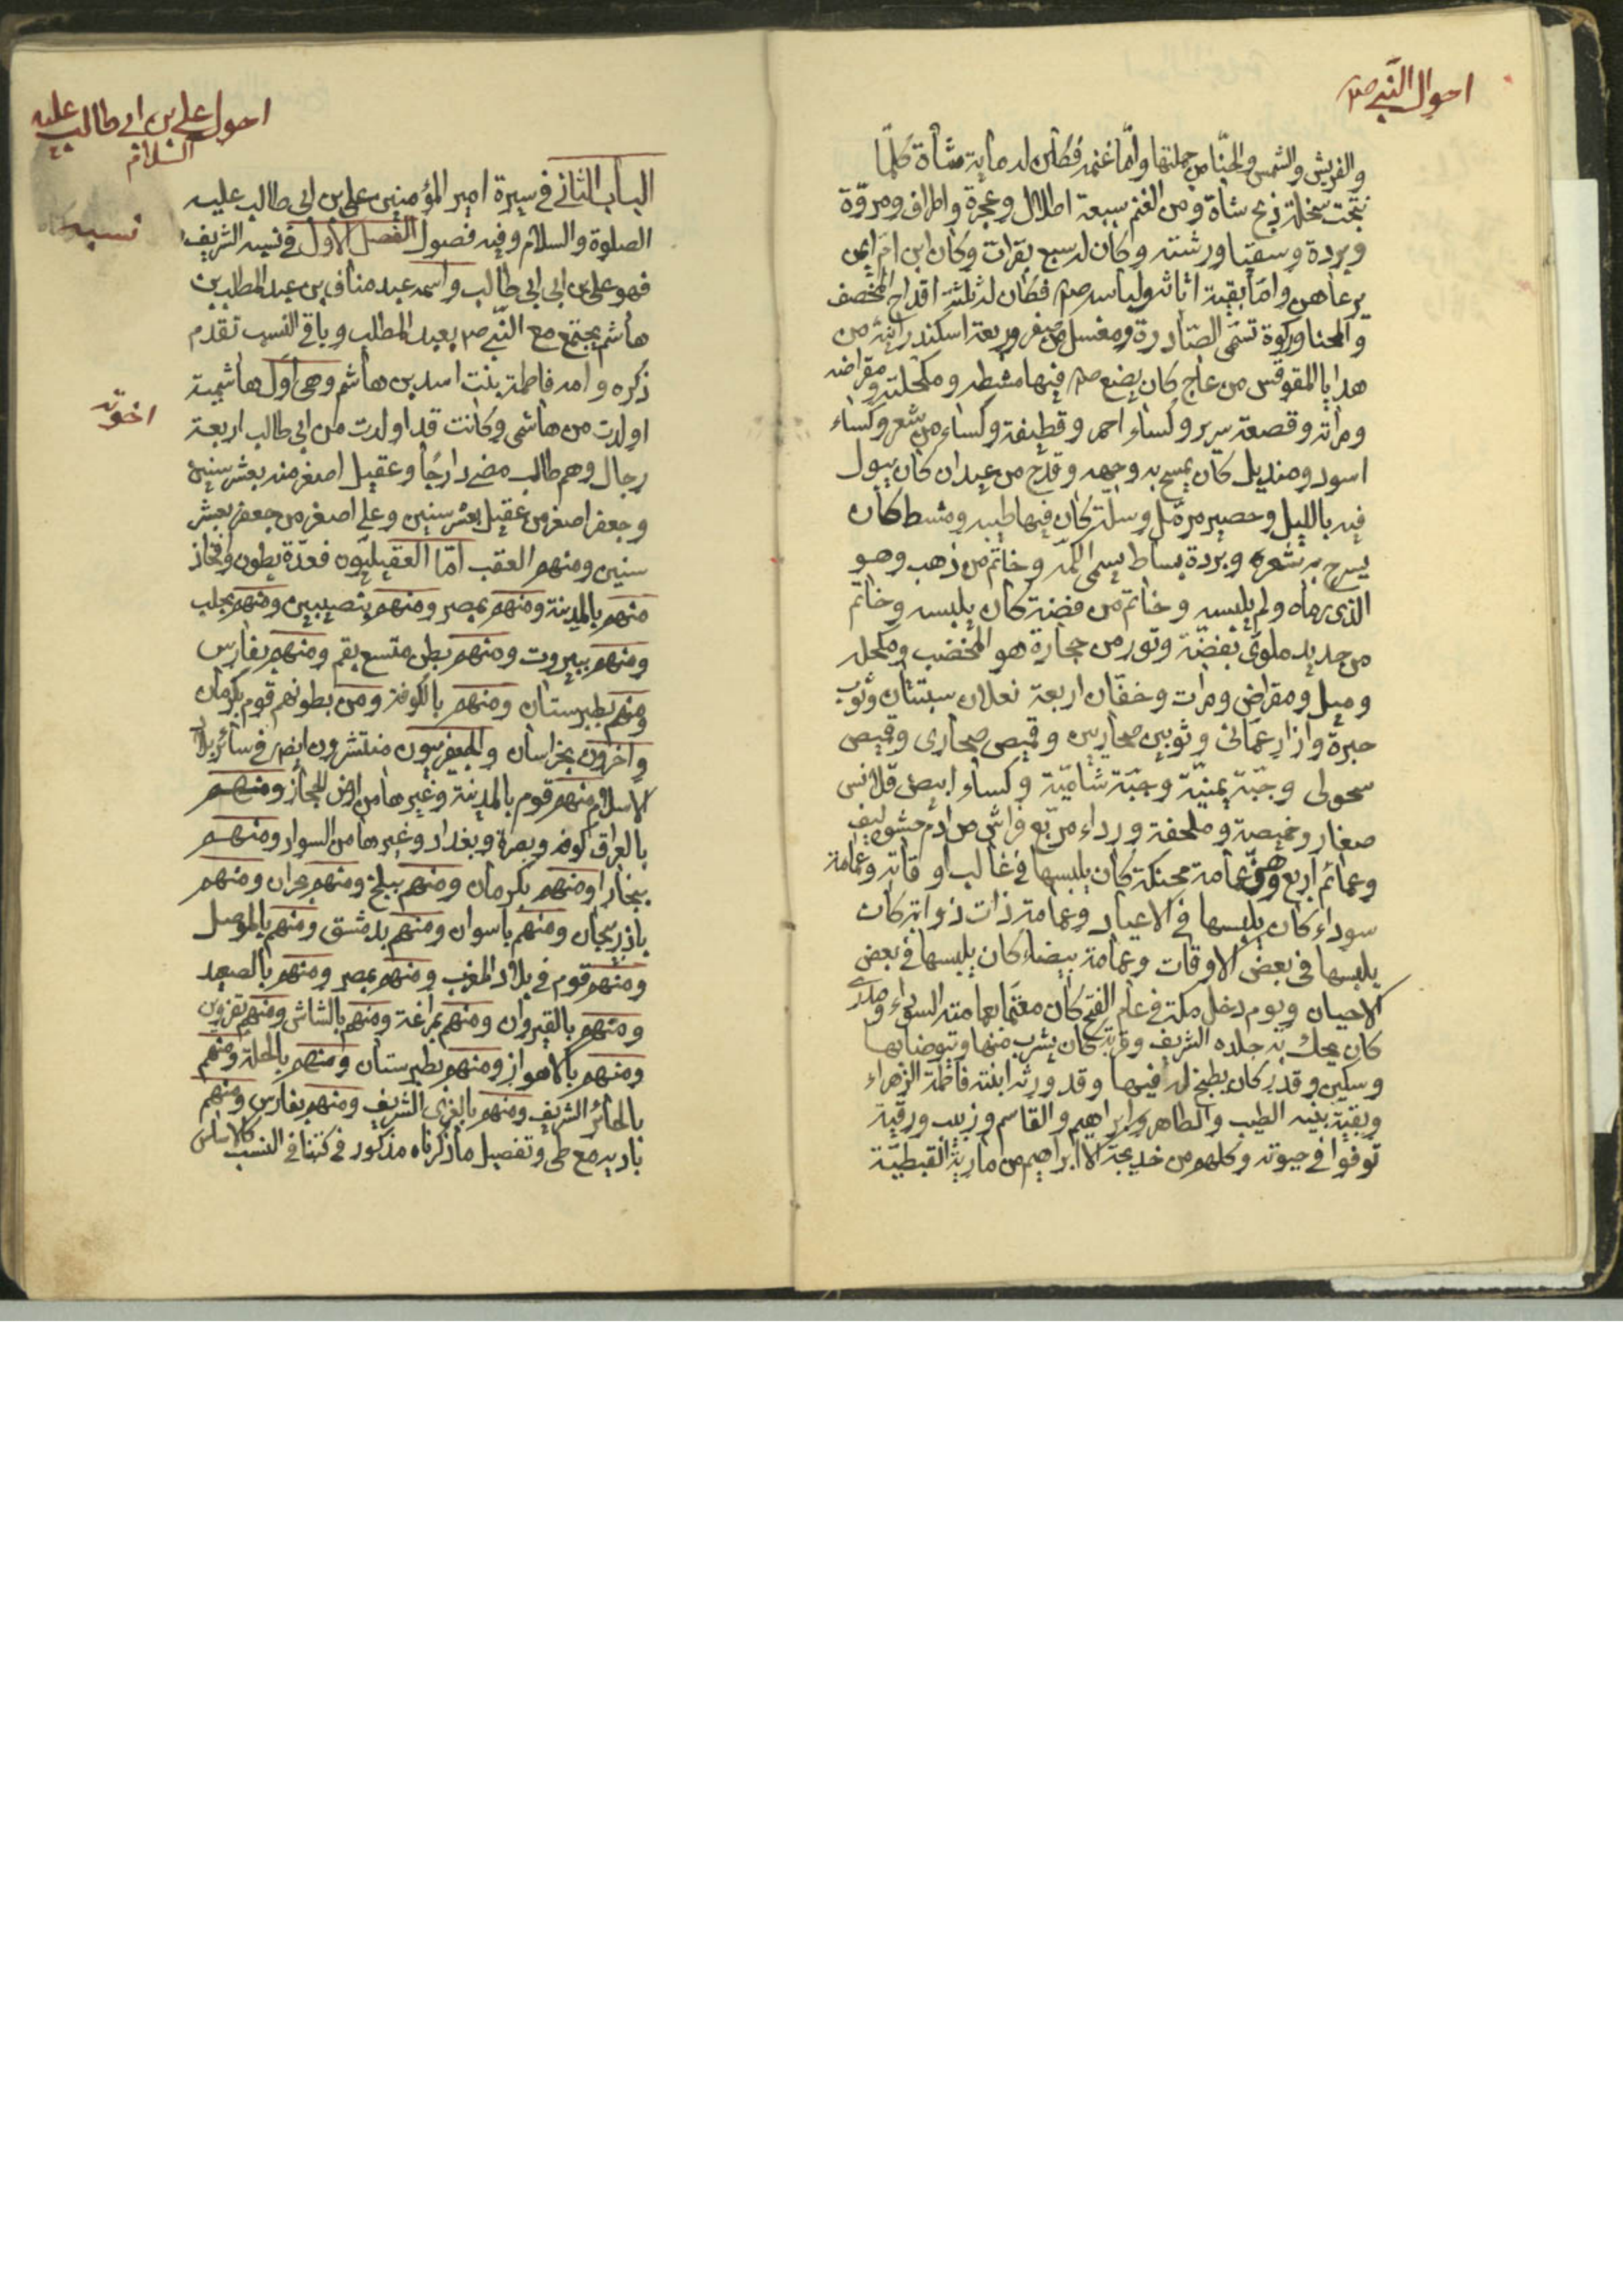 احوال النبي صم
والفريش والشمس والحنا من جملتها واما غنمه فكان له ماية شاة كلما
نتجت سخلة ذبح شاة ومن الغنم سبعة اطلال وعجرة واطراف ومروة
وبردة وسقيا ورشته وكان له سبع بقرات وكان ابن ام ايمن
يرعاهن واما بقية اثاثه ولباسه صم فكان له ثلثة اقداح المخصف
والمحنا وركوة تسمى الصادرة ومغسل من صفر وربعة اسكندرانية من
هدايا المقوقس من عاج كان يضع صم فيها مشطه ومكحلته ومقراضه
ومراته وقصعة سرير وكساء احمر وقطيفة وكساء من شعر وكساء
اسود ومنديل كان يمسح به وجهه وقدح من عيدان كان يبول
فيه بالليل وحصير مرمل وسلة كان فيها طيبه ومشط كان
يسرح به شعره وبردة بساط يسمى الكمر وخاتم من ذهب وهو
الذى رماه ولم يلبسه وخاتم من فضة كان يلبسه وخاتم
من حديد ملوى بفضة وتور من حجارة هو المخضب ومكحله
وميل ومقراض ومرات وخفان اربعة نعلان سبتتان وثوب
حبرة وازار عمانى وثوبين صحاريين وقميص صحارى وقميص
سحولى وجبة يمنية وجبة شامية وكساء ابيض قلانس
صغار وخميصة وملحفة ورداء مربع فراش من ادم حشوه ليف
وعمائم اربع وهى عمامة محنكة كان يلبسها فى غالب اوقاته وعمامة
سوداء كان يلبسها فى الاعياد وعمامة ذات ذوابة كان
يلبسها فى بعض الاوقات وعمامة بيضاء كان يلبسها فى بعض
الاحيان ويوم دخل مكة فى عام الفتح كان معتما بعمامته السوداء
كان يحك به جلده الشريف وقربة كان يشرب منها ويتوضا بها
وسكين وقدر كان يطبخ له فيها وقد ورثه ابنته فاطمة الزهراء
وبقية بنيه الطيب والطاهر وابراهيم والقاسم وزينب ورقية
توفوا فى حيوته وكلهم من خديجة الا ابراهيم من مارية القبطية
احول على بن ابى طالب عليه
السلام
الباب الثانى فى سيرة امير المؤمنين على بن ابى طالب عليه
الصلوة والسلام وفيه فصول الفصل الاول فى نسبه الشريف
نسبه
فهو على بن ابى ابى طالب واسمه عبد مناف بن عبد المطلب بن
هاشم يجتمع مع النبى صم بعبد المطلب وباقى النسب تقدم
ذكره وامه فاطمة بنت اسد بن هاشم وهى اول هاشمية
اخوته
اولدت من هاشمى وكانت قد اولدت من ابى طالب اربعة
رجال وهم طالب مضى دارجا وعقيل اصغر منه بعشر سنين
وجعفر اصغر من عقيل بعشر سنين وعلى اصغر من جعفر بعشر
سنين ومنهم العقب اما العقيليون فعدة بطون وافخاذ
منهم بالمدينة ومنهم بمصر ومنهم بنصيبين ومنهم بحلب
ومنهم ببيروت ومنهم بطن متسع بقم ومنهم بفارس
ومنهم بطبرستان ومنهم بالكوفة ومن بطونهم قوم بكرمان
واخرون بخراسان والجعفريون منتشرون ايضا فى سائر بلاد
الاسلام منهم قوم بالمدينة وغيرها من ارض الحجاز ومنهم
بالعراق كوفه وبصرة وبغداد وغيرها من السواد ومنهم
ببخارا ومنهم بكرمان ومنهم ببلخ ومنهم بحران ومنهم
باذربيجان ومنهم باسوان ومنهم بدمشق ومنهم بالموصل
ومنهم قوم فى بلاد المغرب ومنهم بمصر ومنهم بالصعيد
ومنهم بالقيروان ومنهم بمراغة ومنهم بالشاش ومنهم بقزوين
ومنهم بالاهواز ومنهم بطبرستان ومنهم بالحلة ومنهم
بالحائر الشريف ومنهم بالغرى الشريف ومنهم بفارس ومنهم
بادية مع طى وتفصيل ما ذكرناه مذكور فى كتبنا فى النسب كالاساس